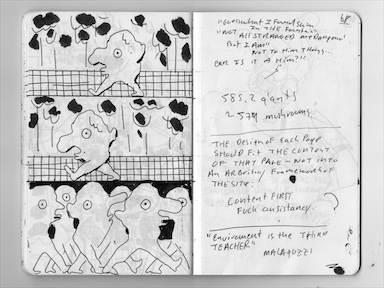 I Found him
In THE Fountain"
"NOT All STRANGED
But I Am"
NOT To Him Things..
OR IS IT A Him?"
585.2 giants
2574 mushrooms.
THE Design of EACH PAGE
Should Fit THE CONTENT
OF THAT PAGE - NOT INTO
An ARbitrary FrameWork OF
THE SITE.
Content FIRST.
Fuck consistancy.
"Enviroment is the THIRD
TEACHER"
MALAGUZZI